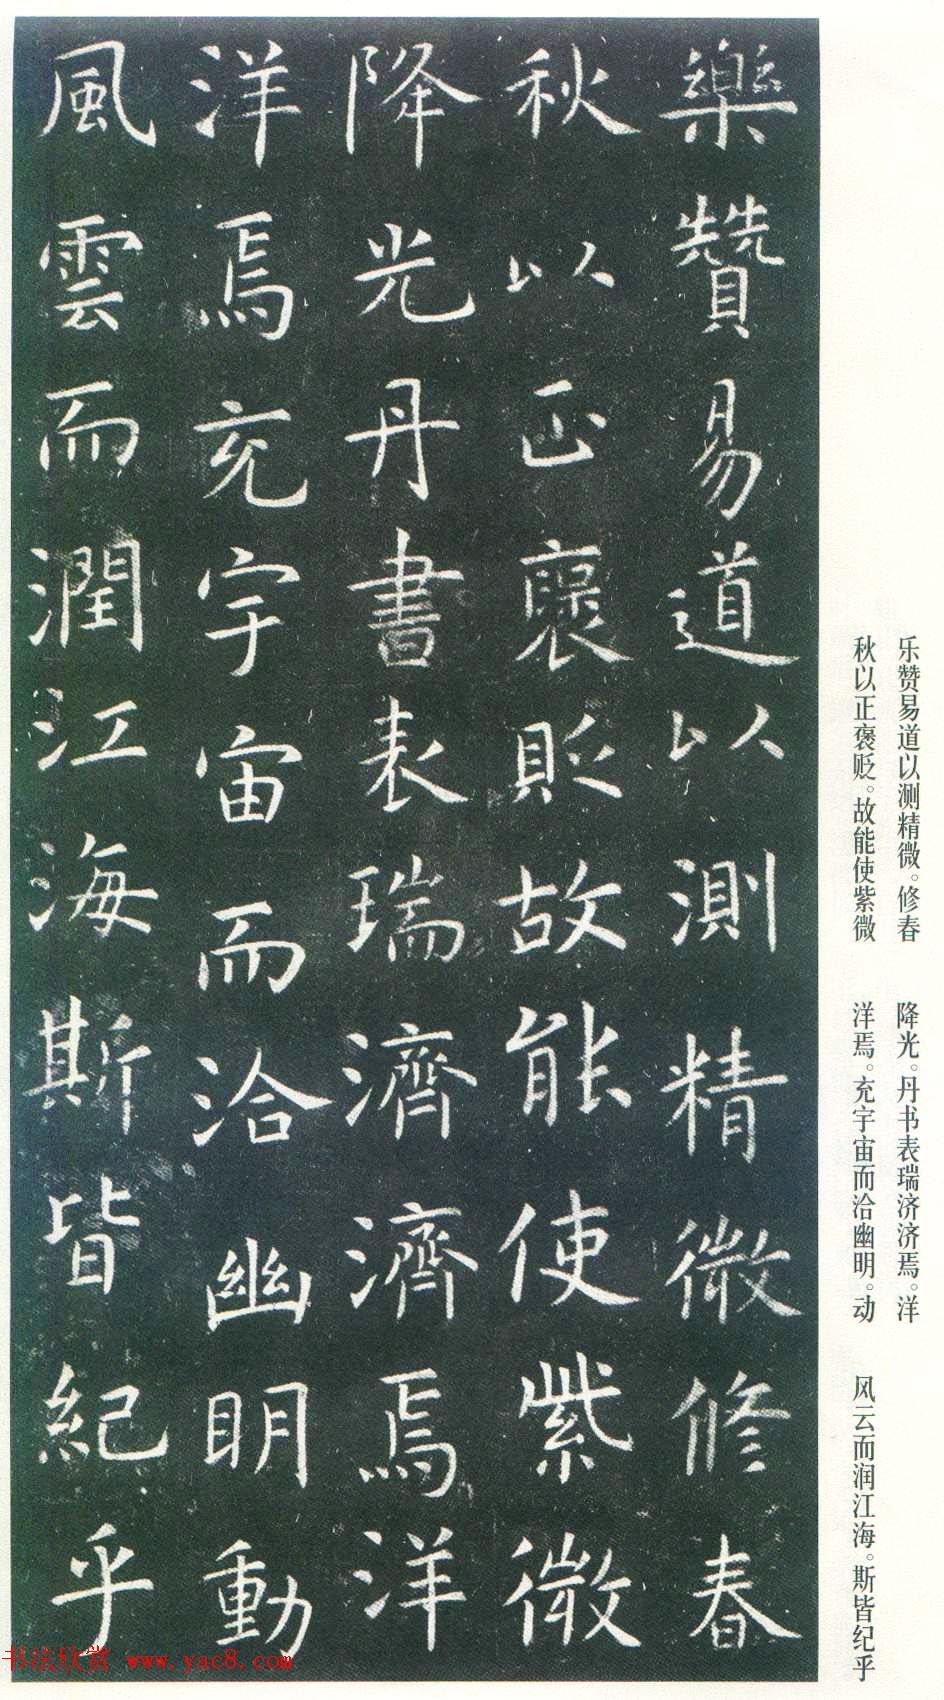 樂贊易道以測精微修春
秋以正褒貶故能使紫微
降光丹書表瑞濟濟焉洋
洋焉充宇宙而洽幽明動
風雲而潤江海斯皆紀乎
乐赞易道以测精微。修春
秋以正褒贬。故能使紫微
降光。丹书表瑞济济焉。洋
洋焉。充宇宙而洽幽明。动
风云而润江海。斯皆纪乎
书法欣赏 www.yac8.com